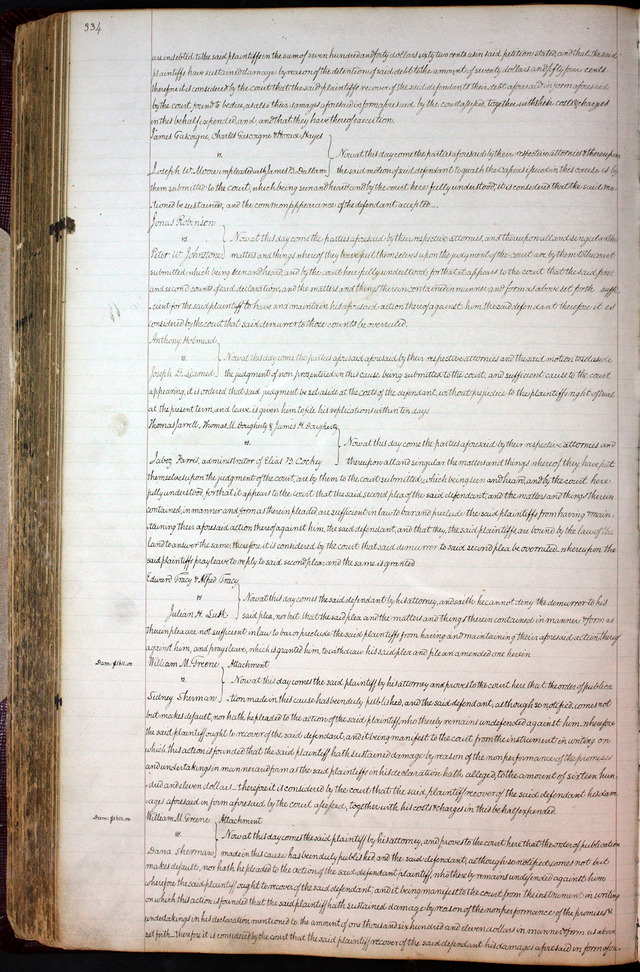 334
are indebted to the said plaintiffs in the sum of seven hundred and forty dollars sixty two cents as in said petition stated, and that the said
plaintiffs have sustained damage by reason of the detention of said debt to the amount of seventy dollars and fifty four cents
therefore it is considered by the court that the said plaintiffs recover of the said defendant their debt aforesaid in form aforesaid
by the court found to be due, as also their damages aforesaid in form aforesaid by the court assessed, together with their costs & charges
in this behalf expended, and, and that they have thereof execution.
James Gascoigne, Charles Gascoigne & Horace Hayes
vs. Now at this day come the parties aforesaid by their respective attornies & thereupon
Joseph W. Moore impleaded with James B. Dallam the said motion of said defendant to quash the capias issued in this cause is by
them submitted to the court, which being seen and heard and by the court here fully understood, it is considered that the said mo-
tion be sustained, and the common appearance of the defendant accepted.
Jonas Robinson
vs. Now at this day come the parties aforesaid by their respective attornies, and thereupon all and singular the
Peter W. Johnstone matters and things whereof they have put themselves upon the judgment of the court are by them to the court
submitted which being seen and heard, and by the court here fully understood, for that it appears to the court that the said first
and second counts of said declaration, and the matters and things therein contained in manner and form as above set forth suffi-
cient for the said plaintiff to have and maintain his aforesaid action thereof against him the said defendant therefore it is
considered by the court that said demurrer to those counts be overruled.
Anthony Holmead
vs. Now at this day come the parties aforesaid aforesaid by their respective attornies and the said motion to set aside
Joseph D. Learned the judgment of non pros entered in this cause being submitted to the court, and sufficient cause to the court
appearing, it is ordered that said judgment be set aside at the costs of the defendant, without prejudice to the plaintiffs right of trial
at the present term, and leave is given him to file his replication within ten days
Thomas Jarrell, Thomas M. Dougherty & James H. Dougherty
vs. Now at this day come the parties aforesaid by their respective attornies and
Jabez Ferris, administrator of Elias B. Cockey thereupon all and singular the matters and things whereof they have put
themselves upon the judgment of the court, are by them to the court submitted, which being seen and heard, and by the court here
fully understood, for that it appears to the court that the said second plea of the said defendant, and the matters and things therein
contained, in manner and form as therein pleaded are sufficient in law to bar and preclude the said plaintiffs from having & main-
taining their aforesaid action thereof against him, the said defendant, and that they, the said plaintiffs, are bound by the law of the
land to answer the same; therefore it is considered by the court that said demurrer to said second plea be overruled whereupon the
said plaintiffs pray leave to reply to said second plea and the same is granted
Edward Tracy & Alfred Tracy
vs Now at this day comes the said defendant by his attorney, and saith he cannot deny the demurrer to his
Julian H. Lusk said plea, nor but that the said plea and the matters and things therein contained in manner & form as
therein plea are not sufficient in law to bar or preclude the said plaintiffs from having and maintaining their aforesaid action thereof
against him, and prays leave, which is granted him, to withdraw his said plea and file an amended one herein
William M. Greene Attachment
vs. Now at this day comes the said plaintiff by his attorney and proves to the court here that the order of publica
Sidney Sherman tion made in this cause has been duly published, and the said defendant, although so notified, comes not
but makes default, nor hath he pleaded to the action of the said plaintiff, who thereby remains undefended against him, wherefore
the said plaintiff ought to recover of the said defendant, and it being manifest to the court from the instrument in writing on
which this action is founded that the said plaintiff hath sustained damage by reason of the non performance of the promises
and undertakings in manner and form as the said plaintiff in his declaration hath alleged, to the amount of sixteen hun
dred and eleven dollars - therefore it is considered by the court that the said plaintiff recover of the said defendant his dam
ages aforesaid in form aforesaid by the court assessed, together with his costs & charges in this behalf expended.
William M. Greene Attachment
vs. Now at this day comes the said plaintiff by his attorney, and proves to the court here that the order of publication
Dana Sherman made in this cause has been duly published and the said defendant, although so notified, comes not but
makes default, nor hath he pleaded to the action of the said plaintiff, who thereby remains undefended against him
wherefore the said plaintiff ought to recover of the said defendant, and it being manifest to the court from the instrument in writing
on which this action is founded that the said plaintiff hath sustained damage by reason of the nonperformance of the promises &
undertakings in his declaration mentioned to the amount of one thousand six hundred and eleven dollars in manner & form as above
set forth - therefore it is considered by the court that the said plaintiff recover of the said defendant his damages aforesaid in form afore